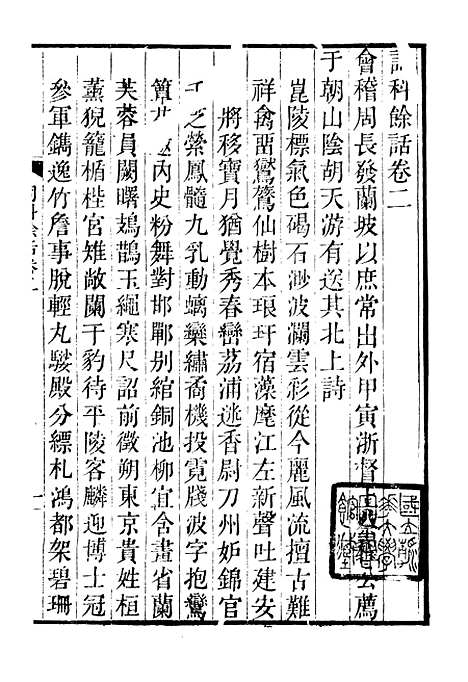 科餘話卷二
會稽周長發蘭坡以庶常出外甲寅浙督公薦
于朝山陰胡天游有送其北上詩
崑陵標氣色碣石渺波瀾雲彩從今麗風流擅古難
祥禽西鸑鷟仙樹本琅玕宿藻麾江左新聲吐建安
將移寶月猶覺秀春巒荔浦逃香尉刀州妒錦官
之縈鳳髓九乳動螭欒繡矞機投霓牋波字抱鸞
內史粉舞對邯鄲別綰銅池柳宜含畫省蘭
芙蓉員闕曙鳷鵲玉繩寒尺詔前徵朔東京貴姓桓
薰猊籠楯桂官雉敞闌干豹待平陵客麟迎博士冠
參軍鐫逸竹詹事脫輕丸駿殿分縹札鴻都架碧珊